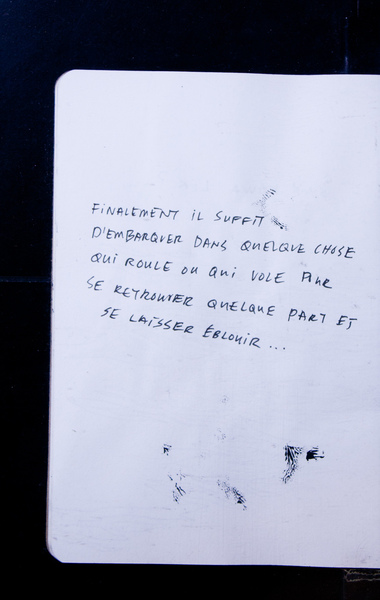 FINALEMENT IL SUFFIT
D'EMBARQUER DANS QUELQUE CHOSE
QUI ROULE OU QUI VOLE POUR
SE RETROUVER QUELQUE PART ET
SE LAISSER ÉBLOUIR ...